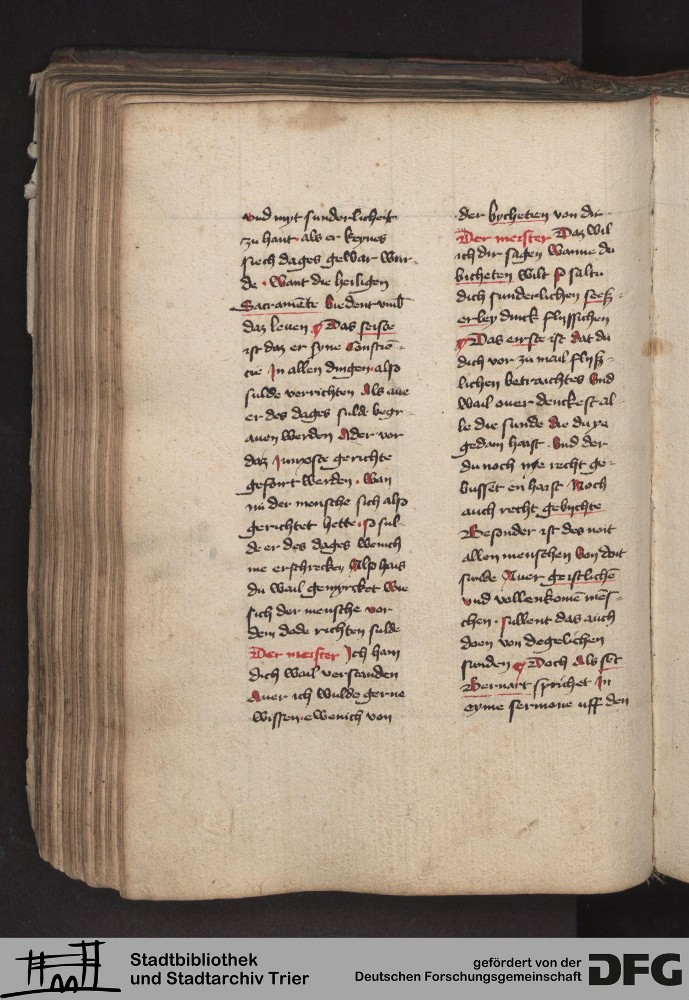 vnd myt sunderlicheit
zu hant als er keynes
siech dages gewar wur-
de. want die heiligen
Sacramēte bedent vmb
daz leuen Das seiste
ist daz er syne Consciē-
cie In allen dingen also
sulde verrichten Als aue
er des dages sulde begr-
auen werden Ader vor
daz Jungste gerichte
gefoirt werden. wan
nū der mensche sich also
gerichtet hette. so sul-
de er des dages wenich
me erschrecken Also hais
du wail gemyrcket wie
sich der mensche vor
dem dode richten sulde
Der meister Ich han
dich wail verstanden
Auer ich wulde gerne
wissen ewenich von
der bycheten von dir
Der meister Daz wil
ich dir sagen wanne du
bicheten wilt So saltu
dich sunderlichen seeß-
erley dinck flyssichen
Das eirste ist dat du
dich vor zu mail flyß-
lichen betraichtes Und
wail ouer denckest al-
le die sunde die du ye
gedain haist. Und der
du noch nye recht ge-
busset en haist Noch
auch recht gebychte
Besonder ist des noit
allen menschen von doit
sunde Auer geistlichē
vnd vollenkomē mēs-
chen. sullent das auch
doen von degelichen
sunden Doch Als sēt
Bernart sprichet In
eyme sermone uff den
Stadtbibliothek
und Stadtarchiv Trier
gefördert von der
Deutschen Forschungsgemeinschaft
DFG